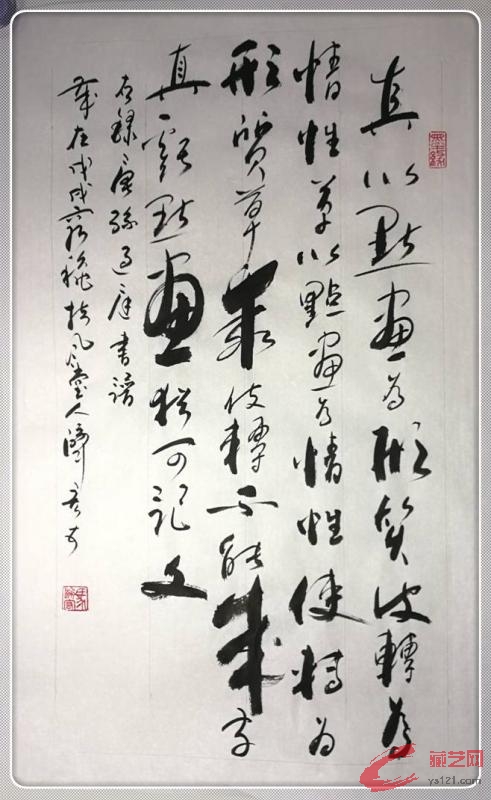 真以點畫為形質使轉為
情性草以點畫為情性使轉為
形質草乖使轉不能成字
真虧點畫猶可記文
右錄唐孫過庭書譜
歲在戊戌
藏艺网
ys121.com